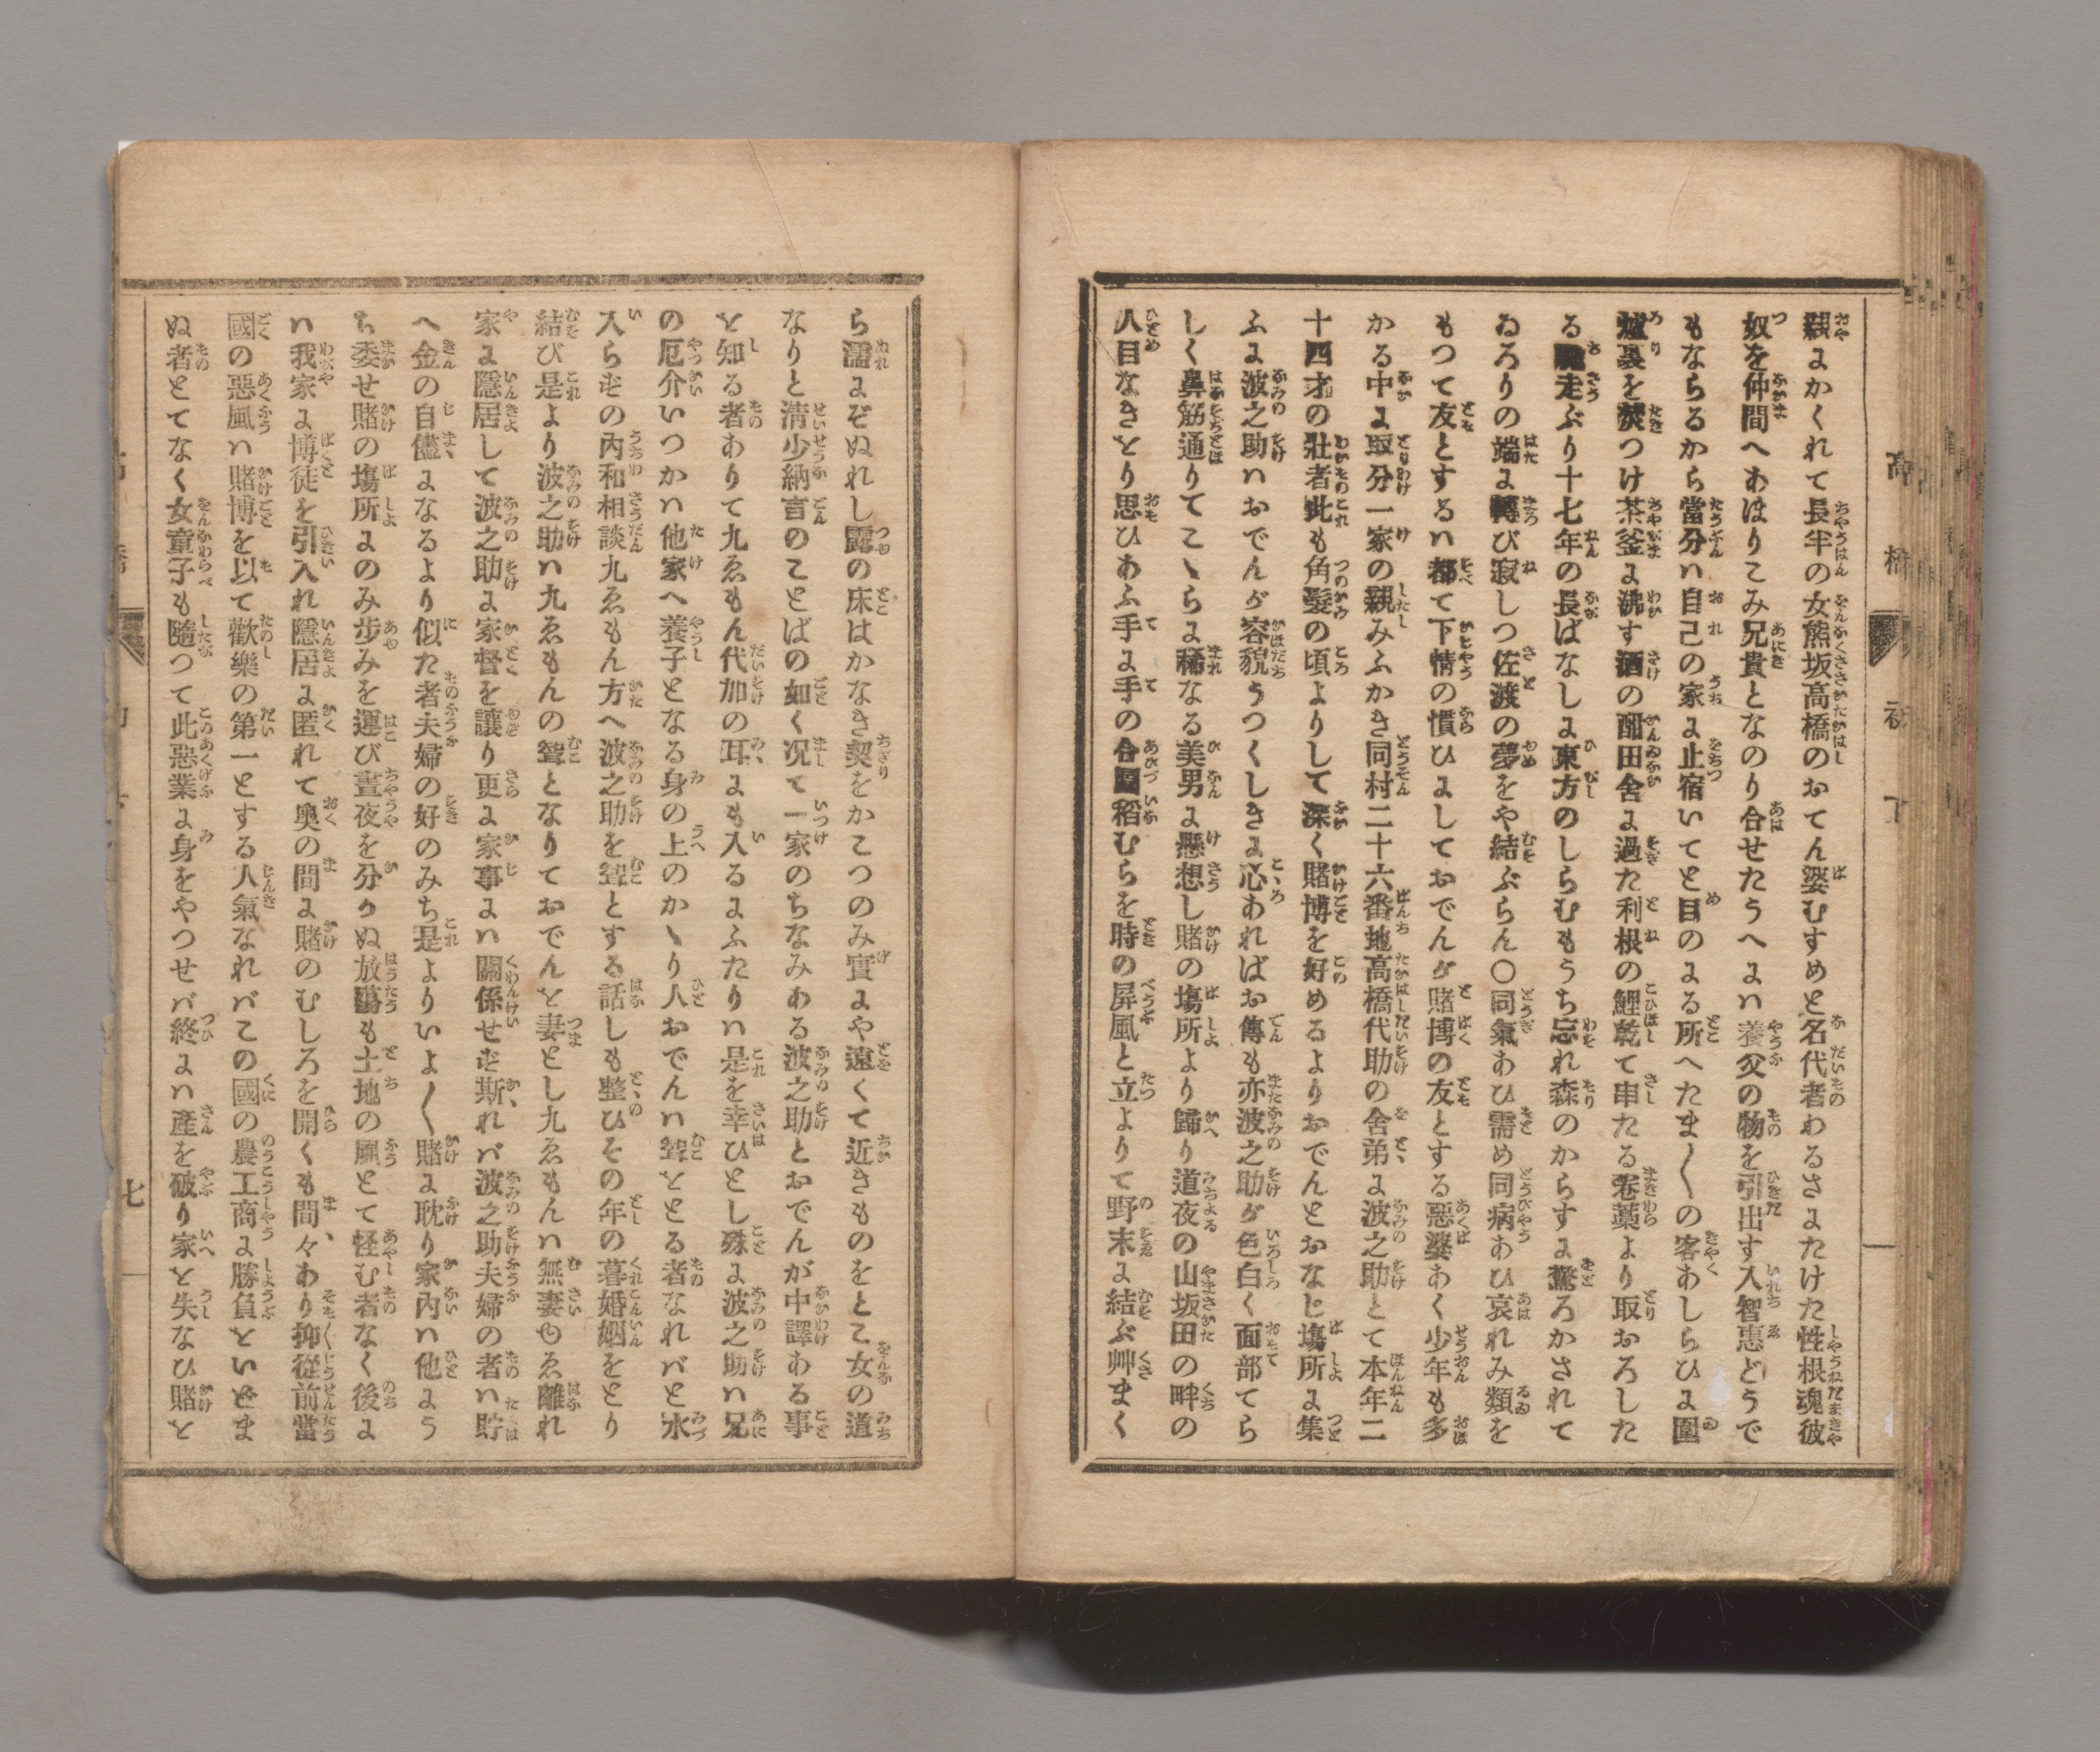 親にかくれて長半の女熊坂高橋のおてん婆むすめと名代者わるさにたけた性根魂彼
奴を仲間へあはりこみ兄貴となのり合せたうへにハ養父の物を引出す入智恵どうで
もならるから當分ハ自己の家に止宿いてと目のよる所へたま〱の客あしらひに圍
爐裏を焚つけ茶釜に沸す酒の酣田舎に過た利根の鯉乾て串たる卷藁より取おろした
る走ぶり十七年の長ばなしに東方のしらむもうち忘れ森のからすに驚ろかされて
ゐろりの端に轉び寂しつ佐渡の夢をや結ぶらん〇同氣あひ需め同病あひ哀れみ類を
もつて友とするハ都て下情の慣ひにしておでんが賭博の友とする惡婆あく少年も多
かる中に取分一家の親みふかき同村二十六番地高橋代助の舎弟に波之助とて本年二
十四才の壯者此も角髪の頃よりして深く賭博を好めるよりおでんとおなじ塲所に集
ふに波之助ハおでんが容貌うつくしきに心あればお傳も亦波之助が色白く面部てら
しく鼻筋通りてこゝらに稀なる美男に懸想し賭の塲所より歸り道夜の山坂田の畔の
人目なきとり思ひあふ手に手の合圖稻むらを時の屏風と立よりて野末に結ぶ艸まく
高橋
ら濡にぞぬれし露の床はかなき契をかこつのみ實にや遠くて近きものをとこ女の道
なりと淸少納言のことばの如く况て一家のちなみある波之助とおでんが中譯ある事
を知る者ありて九ゑもん代加の耳にも入るにふたりハ是を幸ひとし殊に波之助ハ兄
の厄介いつかハ他家へ養子となる身の上のかゝり人おでんハ聟をとる者なれバと水
入らずの内和相談九ゑもん方へ波之助を聟とする話しも整ひその年の暮婚姻をとり
結び是より波之助ハ九ゑもんの聟となりておでんを妻とし九ゑもんハ無妻ゆゑ離れ
家に隱居して波之助に家督を讓り更に家事にハ關係せず斯れバ波之助夫婦の者ハ貯
へ金の自儘になるより似た者夫婦の好のみち是よりいよ〱賭に耽り家内ハ他よう
ち委せ賭の塲所にのみ歩みを運び晝夜を分かぬ放蕩も土地の風とて怪む者なく後に
ハ我家に博徒を引入れ隱居に匿れて奥の間に賭のむしろを開くも間々あり抑從前當
國の惡風ハ賭博を以て歡樂の第一とする人氣なれバこの國の農工商に勝負といどま
ぬ者とてなく女童子も隨つて此惡業に身をやつせバ終にハ產を破り家を失なひ賭と
七